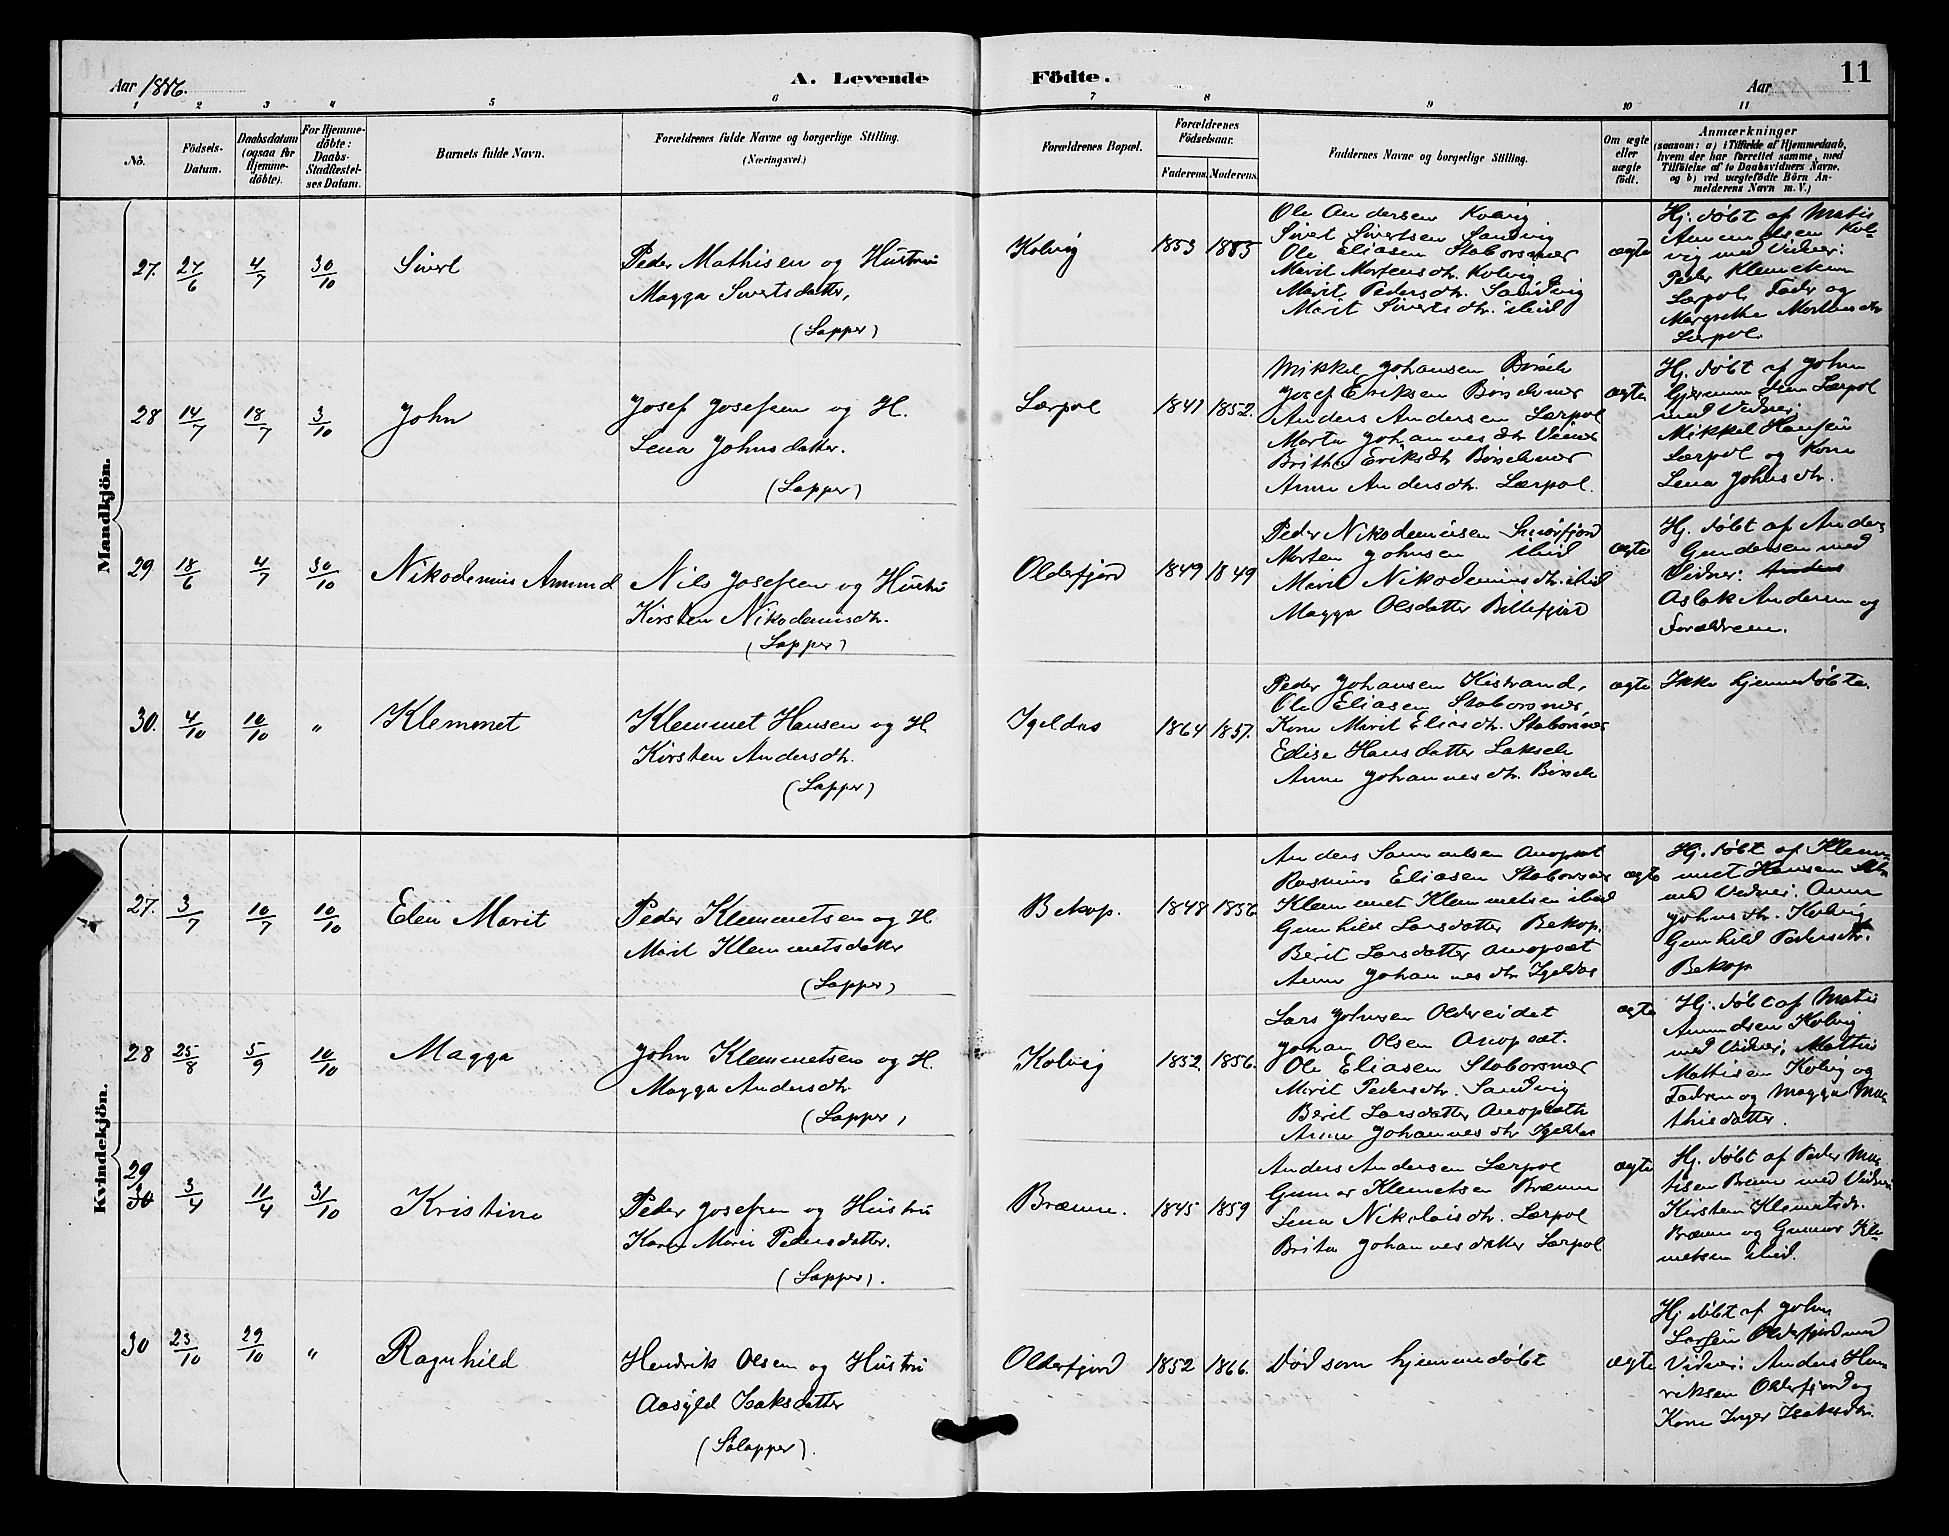 Aar 1886.
A. Levende Födte.
Aar
11
1 2 3 4 5 6 7 8 9 10 11
No.
Födsels-Datum.
Daabsdatum (ogsaa for Hjemme-döbte).
For Hjemme-döbte: Daabs-Stadfæstel-ses Datum.
Barnets fulde Navn.
Forældrenes fulde Navne og borgerlige Stilling. (Næringsvei.)
Forældrenes Bopæl.
Forældrenes Födselsaar.
Faderens. Moderens.
Faddernes Navne og borgerlige Stilling.
Om ægte eller uægte födt.
Anmærkninger
(saasom: a) i Tilfælde af Hjemmedaab,
hvem der har forrettet samme, med
Tilföielse af to Daabsvidners Navne.
og b) ved uægtefödte Börn An-
melderens Navn m. V.)
Mandkjön.
27. 27/6 4/7 30/10 Sivert
Peder Mathisen og Hustru
Magga Sivertsdatter,
(Lapper)
Kolvig 1853 1855
Ole Andersen Kolvig
Sivert Sivertsen Sandvig
Ole Eliasen Staborsnær
Marit Mortensdtr. Kolvig
Marit Pedersdtr. Sandvig
Marit Sivertsdtr. ibid
ægte
Hj. döbt af Matis
Amundsen Kol-
vig med Vidner:
Peder Klemetsen
Lærpol, Fader og
Margrethe Mortensdtr
Lærpol.
28 14/7 18/7 3/10 John
Josef Josefsen og H.
Lena Johnsdatter.
(Lapper)
Lærpol 1841 1852.
Mikkel Johansen Börselv
Josef Eriksen Börselvnær
Anders Andersen Lærpol
Marta Johannesdtr
Britha Eriksdtr Börselvnær
Anne Andersdtr. Lærpol.
ægte
Hj. döbt af John
Lærpol
med Vidner:
Mikkel Hansen
Lærpol og Kone
Lena Johnsdtr.
29 18/6 4/7 30/10 Nikodemus Amund
Nils Josefsen og Hustru
Kirsten Nikodemusdtr.
(Lapper)
Olderfjord 1849 1849
Peder Nikodemusen Smörfjord
Morten Johnsen ibid
Marit Nikodemusdtr. ibid
Magga Olsdatter Billefjord
ægte
Hj. döbt af Anders
Gundersen med
Vidner: Anders
Aslak Andersen og
Forældrene.
30. 4/10 10/10 " Klemmet
Klemmet Hansen og H
Kirsten Andersdtr.
(Lapper)
Igeldas 1864 1857.
Peder Johansen Kistrand,
Ole Eliasen Staborsnær,
Kone Marit Eliasdtr. Staborsnær
Edise Hansdatter Lakselv
Anne Johannesdtr. Börselv
ægte
Ikke hjemmedöbte.
Kvindekjön.
27. 3/7 10/7 10/10 Elen Marit
Peder Klemmetsen og H.
Marit Klemmetsdatter
(Lapper)
Bekop. 1848 1856
Anders Samuelsen Anopsæt
Rasmus Eliasen Staborsnær
Klemmet Klemmetsen ibid
Gunhild Larsdatter Bekop.
Berit Larsdatter Anopsæt
Anne Johannesdtr Igeldas
ægte
Hj. döbt af Klem-
met Hansen
med Vidner: Anne
Johnsdtr. Kolvig
Gunhild Pedersdtr.
Bekop
28 25/8 5/9 10/10 Magga
John Klemmetsen og H.
Magga Andersdtr.
(Lapper)
Kolvig 1852. 1856.
Lars Johnsen Oldereidet
Johan Olsen Anopsæt.
Ole Eliasen Staborsnær
Marit Pedersdtr. Sandvig
Berit Larsdatter Anopsæth
Anne Johannesdtr Igeldas
ægte
Hj. döbt af Matis
Amundsen Kolvig
med Vidner: Mathis
Mathisen Kolvig og
Fadren og Magga Ma-
thisdatter.
29
30 3/4 11/4 31/10 Kristine
Peder Josefsen og Hustru
Karen Marie Pedersdatter.
(Lapper).
Brænne. 1845 1859
Anders Andersen Lærpol
Gunnar Klemetsen Brænne
Lena Nikolaisdtr. Lærpol
Brita Johannesdatter Lærpol
ægte
Hj. döbt af Peder Ma-
tisen Brænne med Vidner
Kirsten Klemetsdr.
Brænne og Gunnar Kle-
metsen ibid.
30 23/10 29/10 " Ragnhild
Hendrik Olsen og Hustru
Aasyld Isaksdatter
(Sölapper).
Olderfjord 1852 1866.
Död som hjemmedöbt
ægte
Hj döbt af John
Larsen Olderfjord med
Vidner: Anders Hen-
riksen Olderfjord og
Kone Inger Isaksdtr.